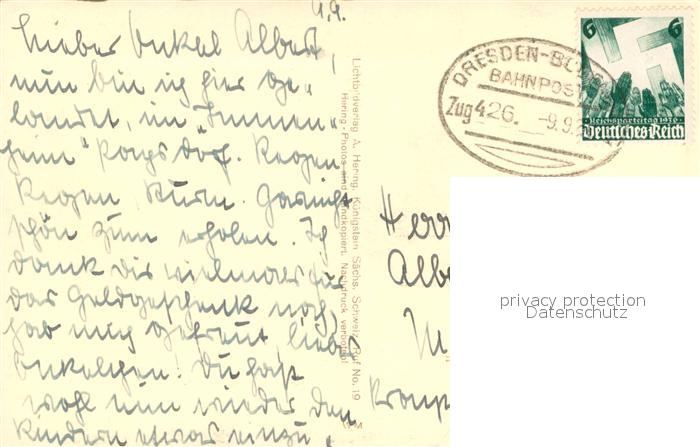 9.9.
Lieber Onkel Albert,
nun bin ich hier ge-
landet, im "Immen-
heim" Regen
Regen Sturm. Garnicht
schön zum erholen. Ich
dank dir vielmals für
das Geldgeschenk noch,
hab mich gefreut lieb
Onkelchen. Du hast
wohl nun wieder den
Kindern etwas
Lichtbildverlag A. Hering, Königstein Sächs. Schweiz. Ruf No. 19
Hering-Photos sind handkopiert. Nachdruck verboten!
DRESDEN-BO
BAHNPOST
Zug 426 -9.9.
6 6
Reichsparteitag 1936
Deutsches Reich
Herr
Albe
privacy protection
Datenschutz